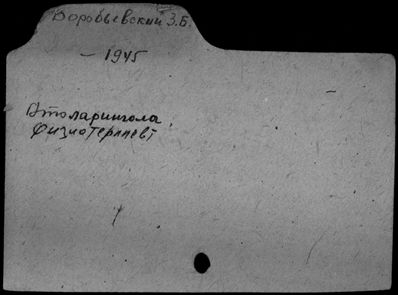 Воробьевский З.Б.
– 1945
Отоларингола,
Физиотерапевт